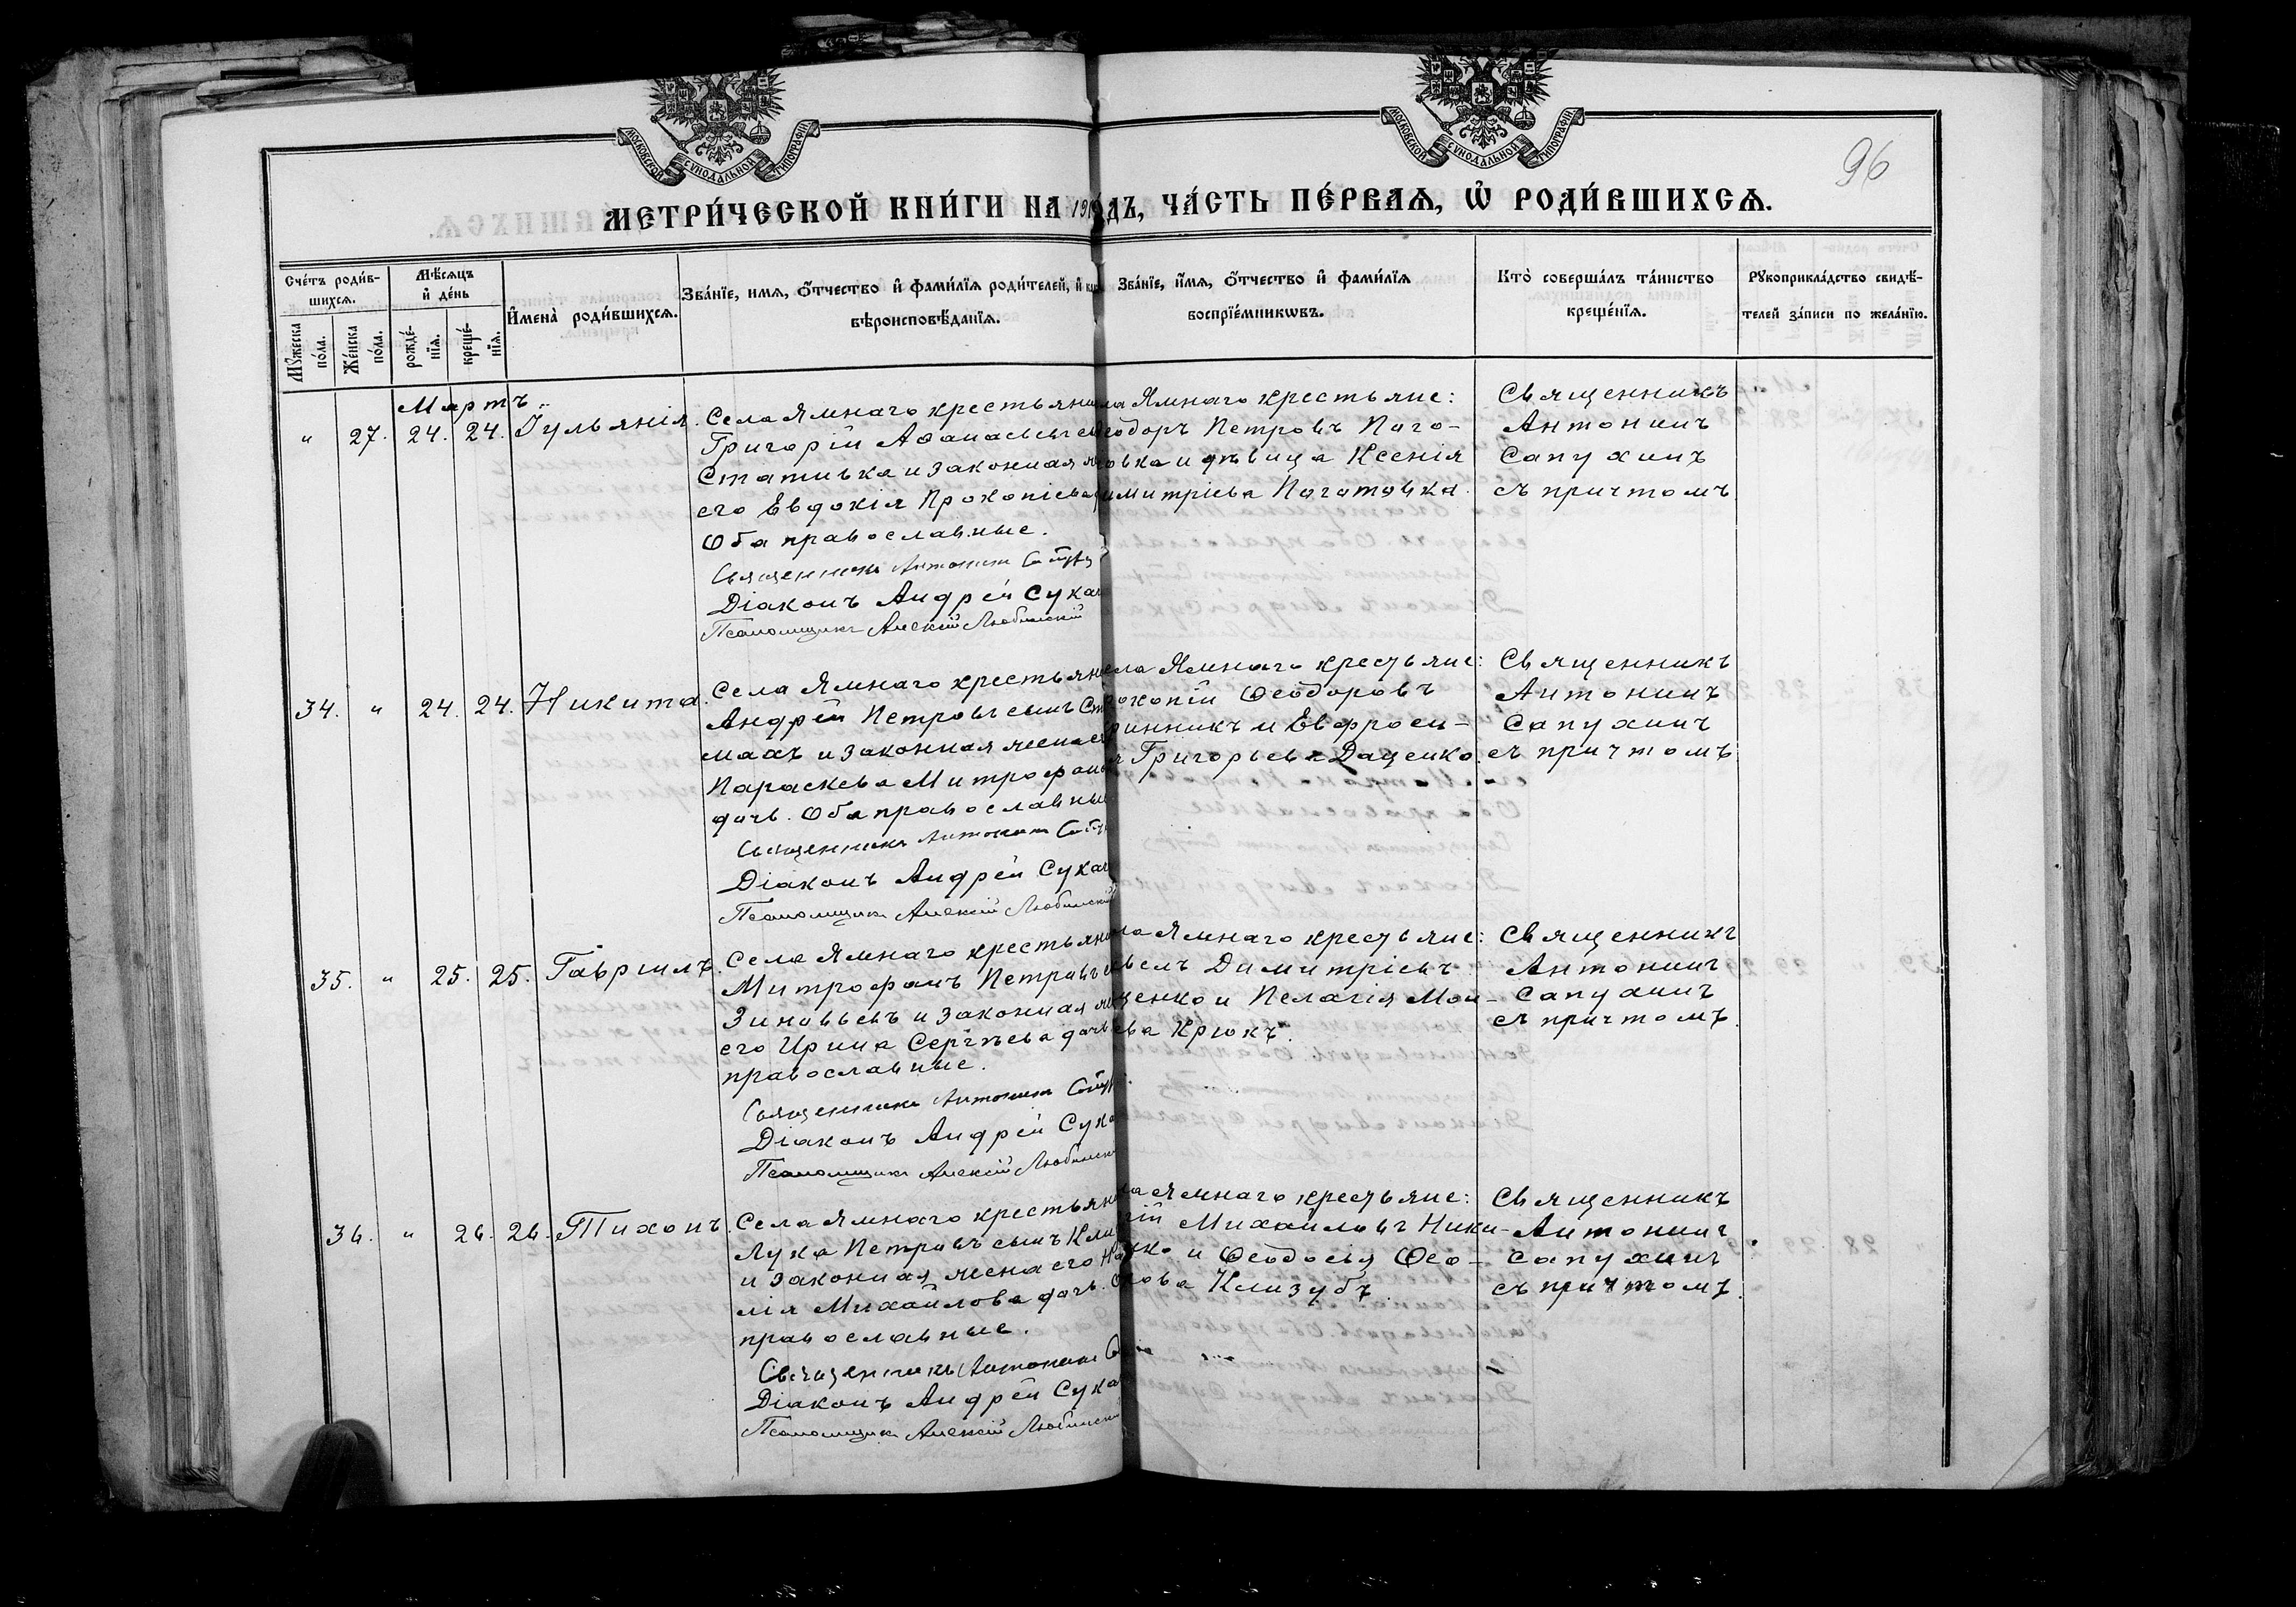 МОСКОВСКОЙ СѴНОДАЛЬНОЙ ТИПОГРАФІИ
МОСКОВСКОЙ СѴНОДАЛЬНОЙ ТИПОГРАФІИ
96
МЕТРИ́ЧЕСКОЙ КНИ́ГИ НА 19 ДЪ, ЧА́СТЬ ПЕ́РВАѦ, Ѡ҆ РОДИ́ВШИХСѦ.
Сче́тъ роди́в-
шихсѧ.
Мꙋ́жеска по́ла.
Же́нска по́ла.
Мѣ́сѧцъ
и҆ де́нь
рожде́-
нїѧ.
креще́-
нїѧ.
И҆мена̀ роди́вшихсѧ.
Зва́нїе, имѧ, ѻ҆́тчество и҆ фами́лїѧ роди́телей, и҆
вѣроисповѣ́данїѧ.
Зва́нїе, и҆́мѧ, ѻ҆́тчество и҆ фами́лїѧ
воспрїе́мникѡвъ.
Кто̀ соверша́лъ та́инство
креще́нїѧ.
Рꙋкоприкла́дство свидѣ́-
телей за́писи по жела́нїю.
Мартъ
" 27. 24. 24. Іульянія.
Села Ямнаго крестьяни
Григорій Аѳанасьевъ
Стативка и законная
его Евдокія Прокопіева
Оба православные.
Священникъ Антонинъ
Діаконъ Андрей Сука
Псаломщикъ Алексій Любинскій
ла Ямнаго крестьяне:
еодоръ Петровъ Пого-
овка и дѣвица Ксенія
имитріева
Священникъ
Антонинъ
Сапухинъ
съ причтомъ
34. " 24. 24. Никита.
Села Ямнаго крестьян
Андрей Петровъ сынъ
махъ и законная жена
Параскева Митрофан
дочь. Оба православны
Священникъ Антонинъ
Діаконъ Андрей Сукач
Псаломщикъ Алексій Любинскій
ела Ямнаго крестьяне:
рокопій Ѳеодоровъ
ринникъ и Евфроси-
Григорьева Даценко.
Священникъ
Антонинъ
Сапухинъ
съ причтомъ
35. " 25. 25. Гавріилъ.
Села Ямнаго крестьяни
Митрофанъ Петровъ
Зиновьевъ и законная
его Ирина Сергѣева дочь
православные.
Священникъ Антонинъ
Діаконъ Андрей Сука
Псаломщикъ Алексій Любинск
ла Ямнаго крестьяне:
велъ Димитріевъ
ценко и Пелагія Мои-
ева Крюкъ.
Священникъ
Антонинъ
Сапухинъ
съ причтомъ.
36. " 26. 26. Тихонъ.
Села Ямнаго крестьян
Лука Петровъ сынъ Кли
и законная жена его На
лія Михайлова дочь.
православные.
Священникъ Антонинъ
Діаконъ Андрей Сука
Псаломщикъ Алексій Любинск
ла Ямнаго крестьяне:
гій Михайловъ Ники-
и Ѳеодосія Ѳео-
рова Клизубъ.
Священникъ
Антонинъ
Сапухинъ
съ причтомъ.